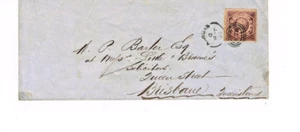 M. P. Barker Esq
at Messrs Little & Browne's
Solicitors
Queen Street
Brisbane
Queensland